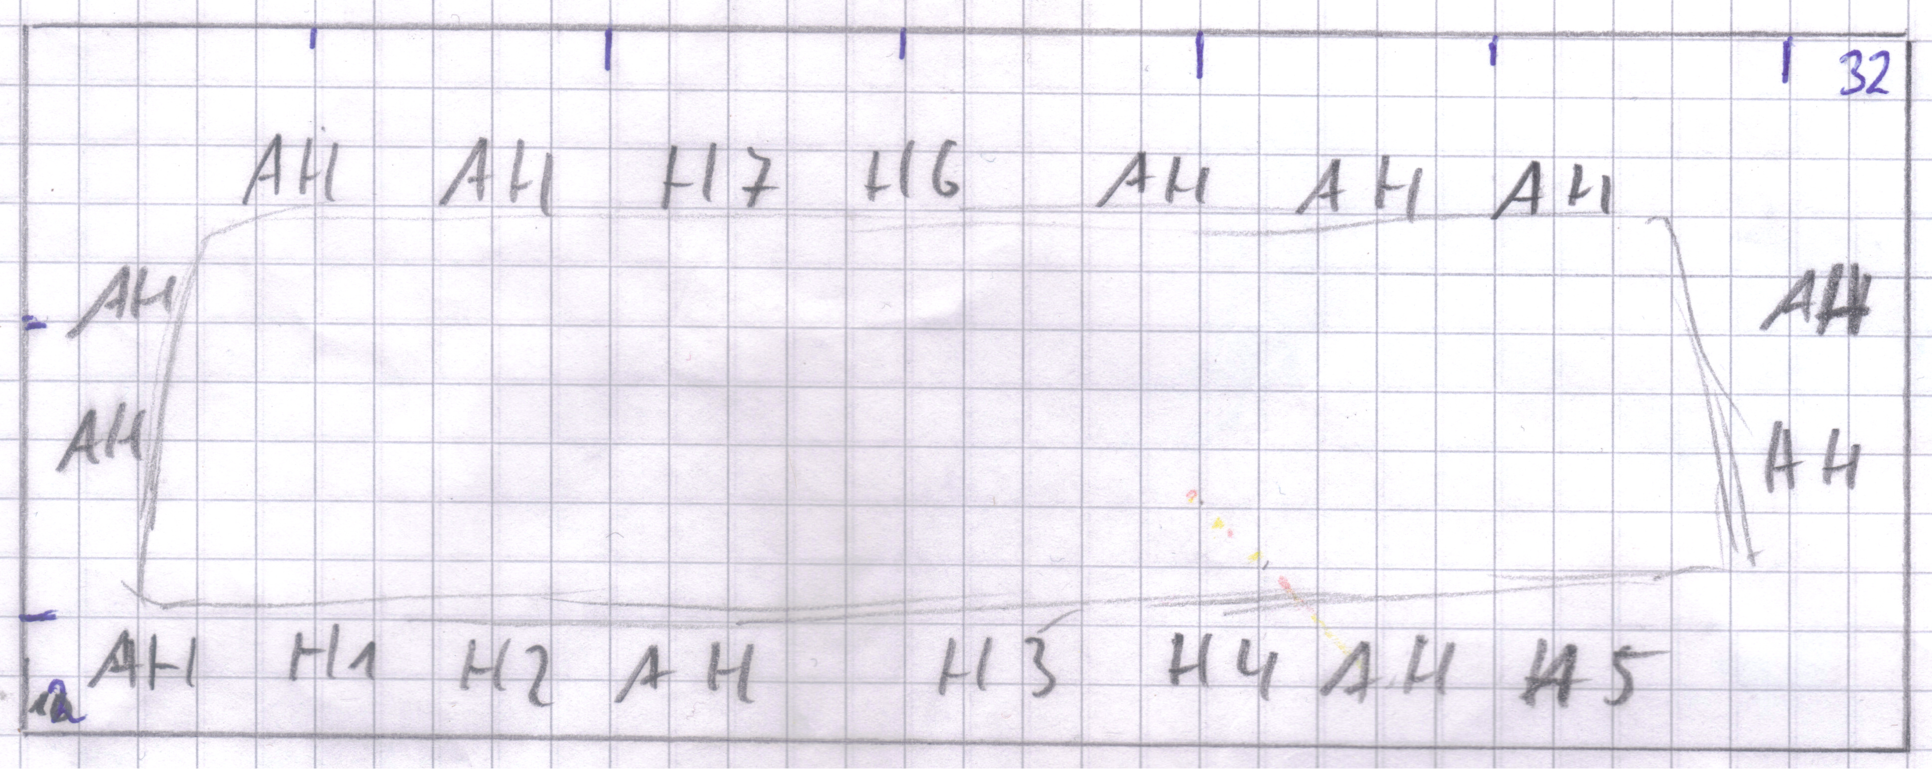 32
AH AH H7 H6 AH AH AH
AH AH
AH AH
AH H1 H2 AH H3 H4 AH H5
12